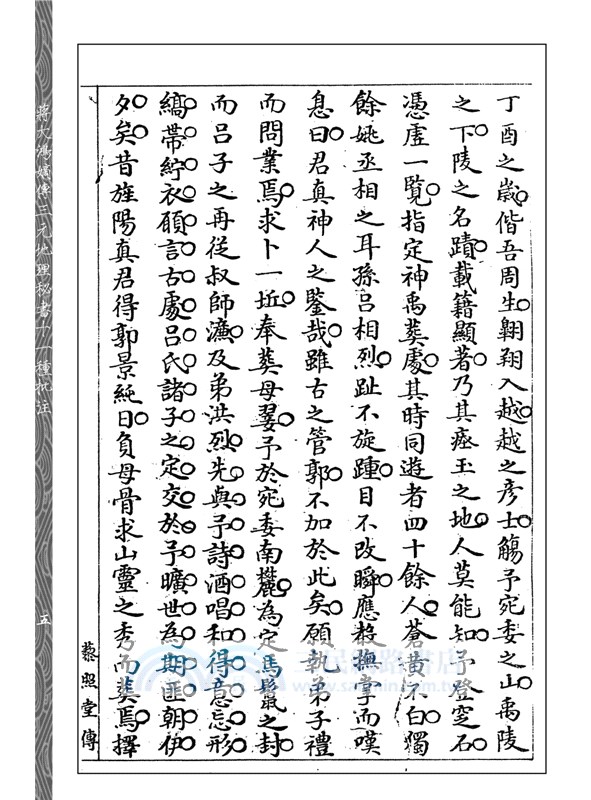 丁酉之嵗偕吾周生翺翔入越越之彦士觴予宛委之山禹陵
之下陵之名蹟載籍顯著乃其瘞玉之地人莫能知予登窆石
憑虛一覽指定神禹葬處其時同遊者四十餘人蒼黄不白獨
餘姚丞相之耳孫吕相烈趾不旋踵目不改瞬應教撫掌而嘆
息曰君真神人之鑒哉雖古之管郭不加於此矣願執弟子禮
而問業焉求卜一坵奉葬母翣予於宛委南麓為定馬鬛之封
而吕子之再從叔師濂及弟洪烈先與予詩酒唱和得意忘形
縞帶紵衣願言古處吕氏諸子之定交於予曠世為期匪朝伊
夕矣昔旌陽真君得郭景純日負母骨求山靈之秀而葬焉擇
蔡照堂傳
蔣大鴻嫡傳三元地理秘書十一種批注
五
三民網路書店
www.sanmin.com.tw